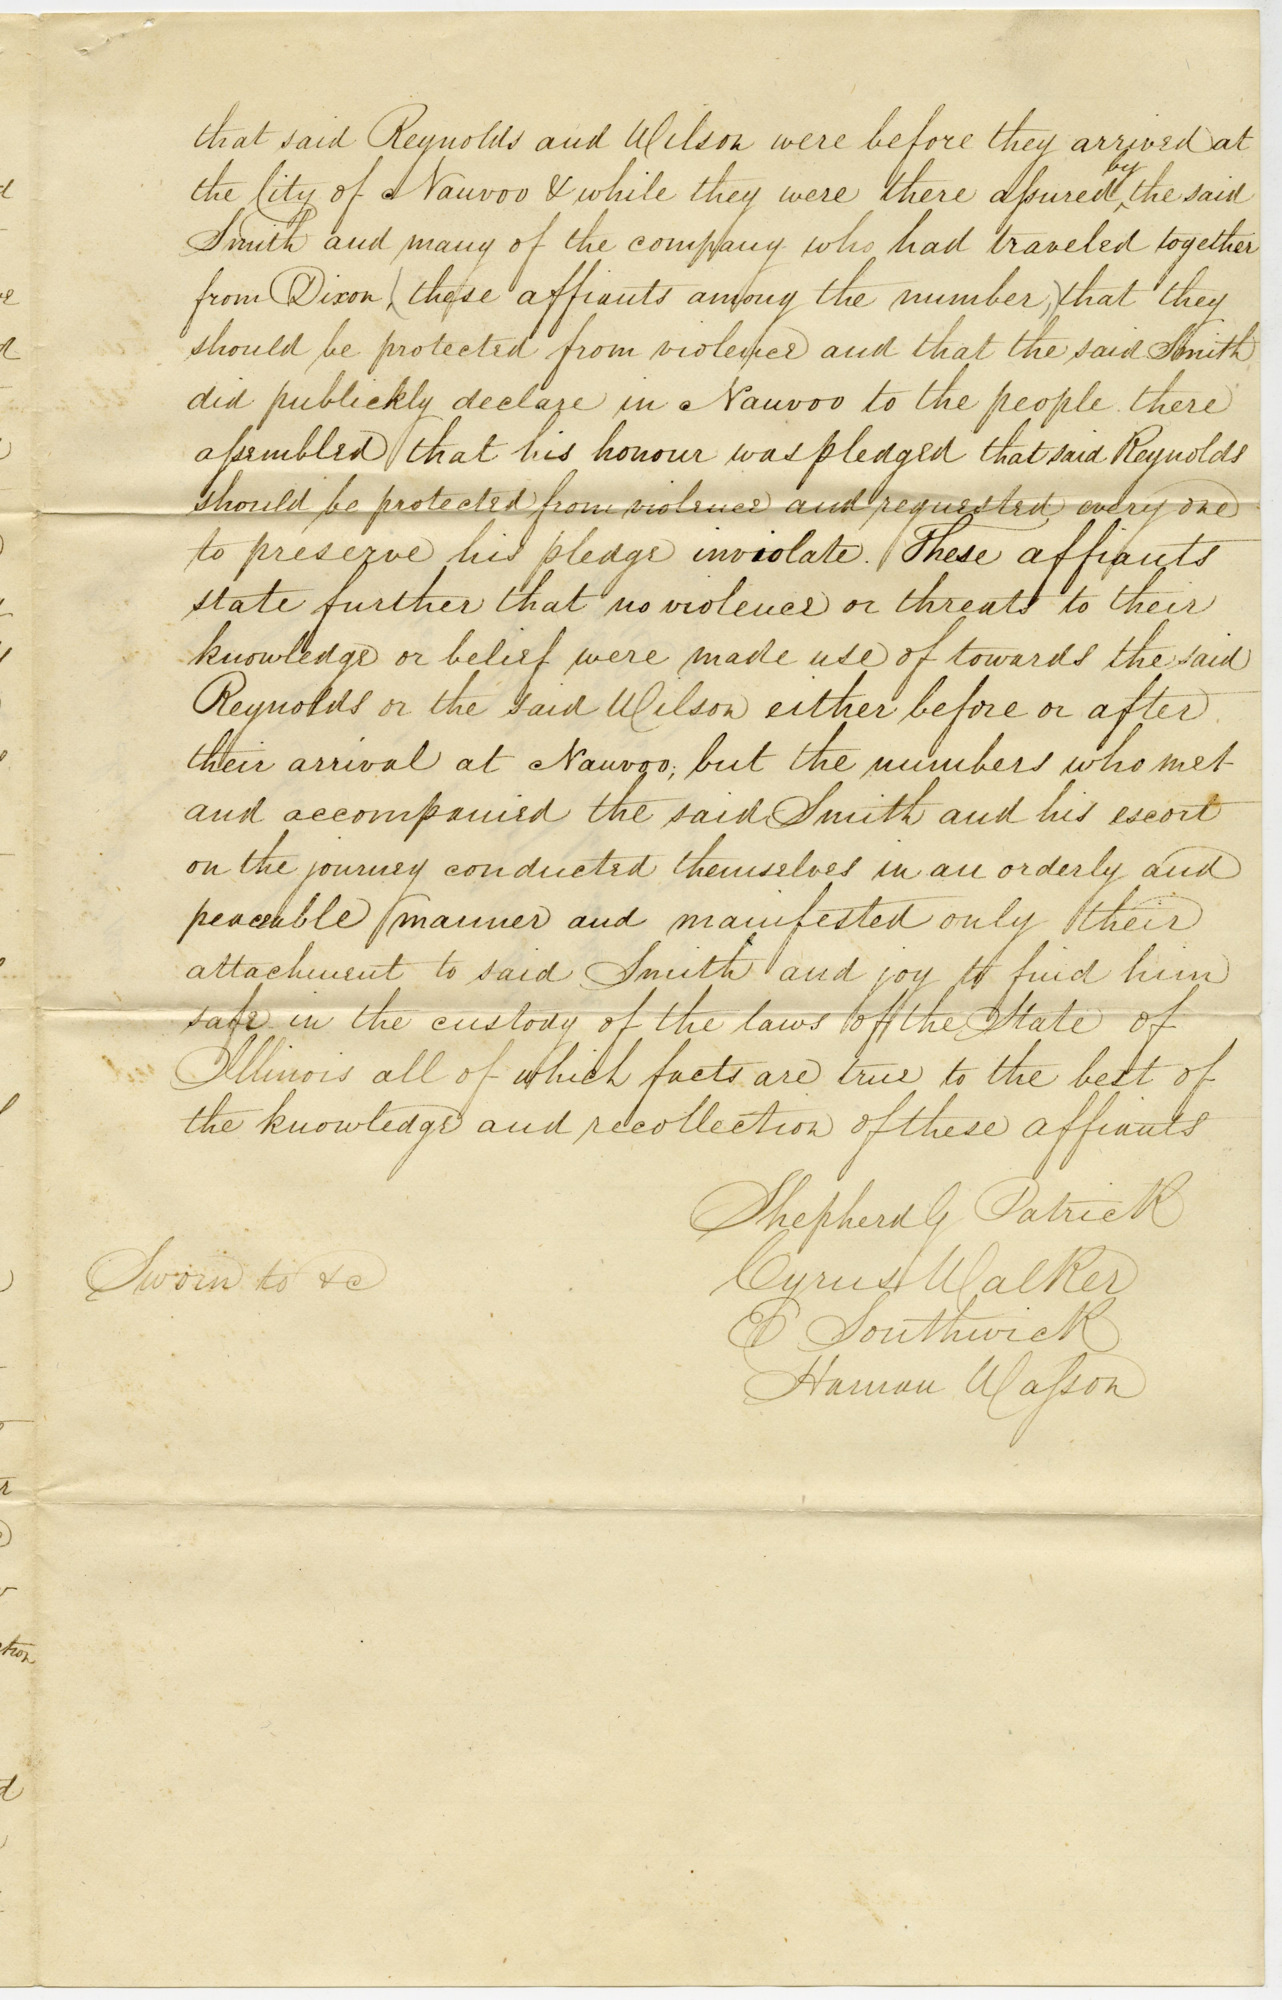 that said Reynolds and Wilson were before they arrived at
the City of Nauvoo & while they were there assured by the said
Smith and many of the company who had traveled together
from Dixon, (these affiants among the number,) that they
should be protected from violence and that the said Smith
did publickly declare in Nauvoo to the people there
assembled that his honour was pledged that said Reynolds
should be protected from violence and requested every one
to preserve his pledge inviolate. These affiants
state further that no violence or threats to their
knowledge or belief were made use of towards the said
Reynolds or the said Wilson either before or after
their arrival at Nauvoo; but the numbers who met
and accompanied the said Smith and his escort
on the journey conducted themselves in an orderly and
peaceable manner and manifested only their
attachment to said Smith and joy to find him
safe in the custody of the laws of the State of
Illinois all of which facts are true to the best of
the knowledge and recollection of these affiants
Shepherd G Patrick
Sworn to &c
Cyrus Walker
E Southwick
Harman Wasson